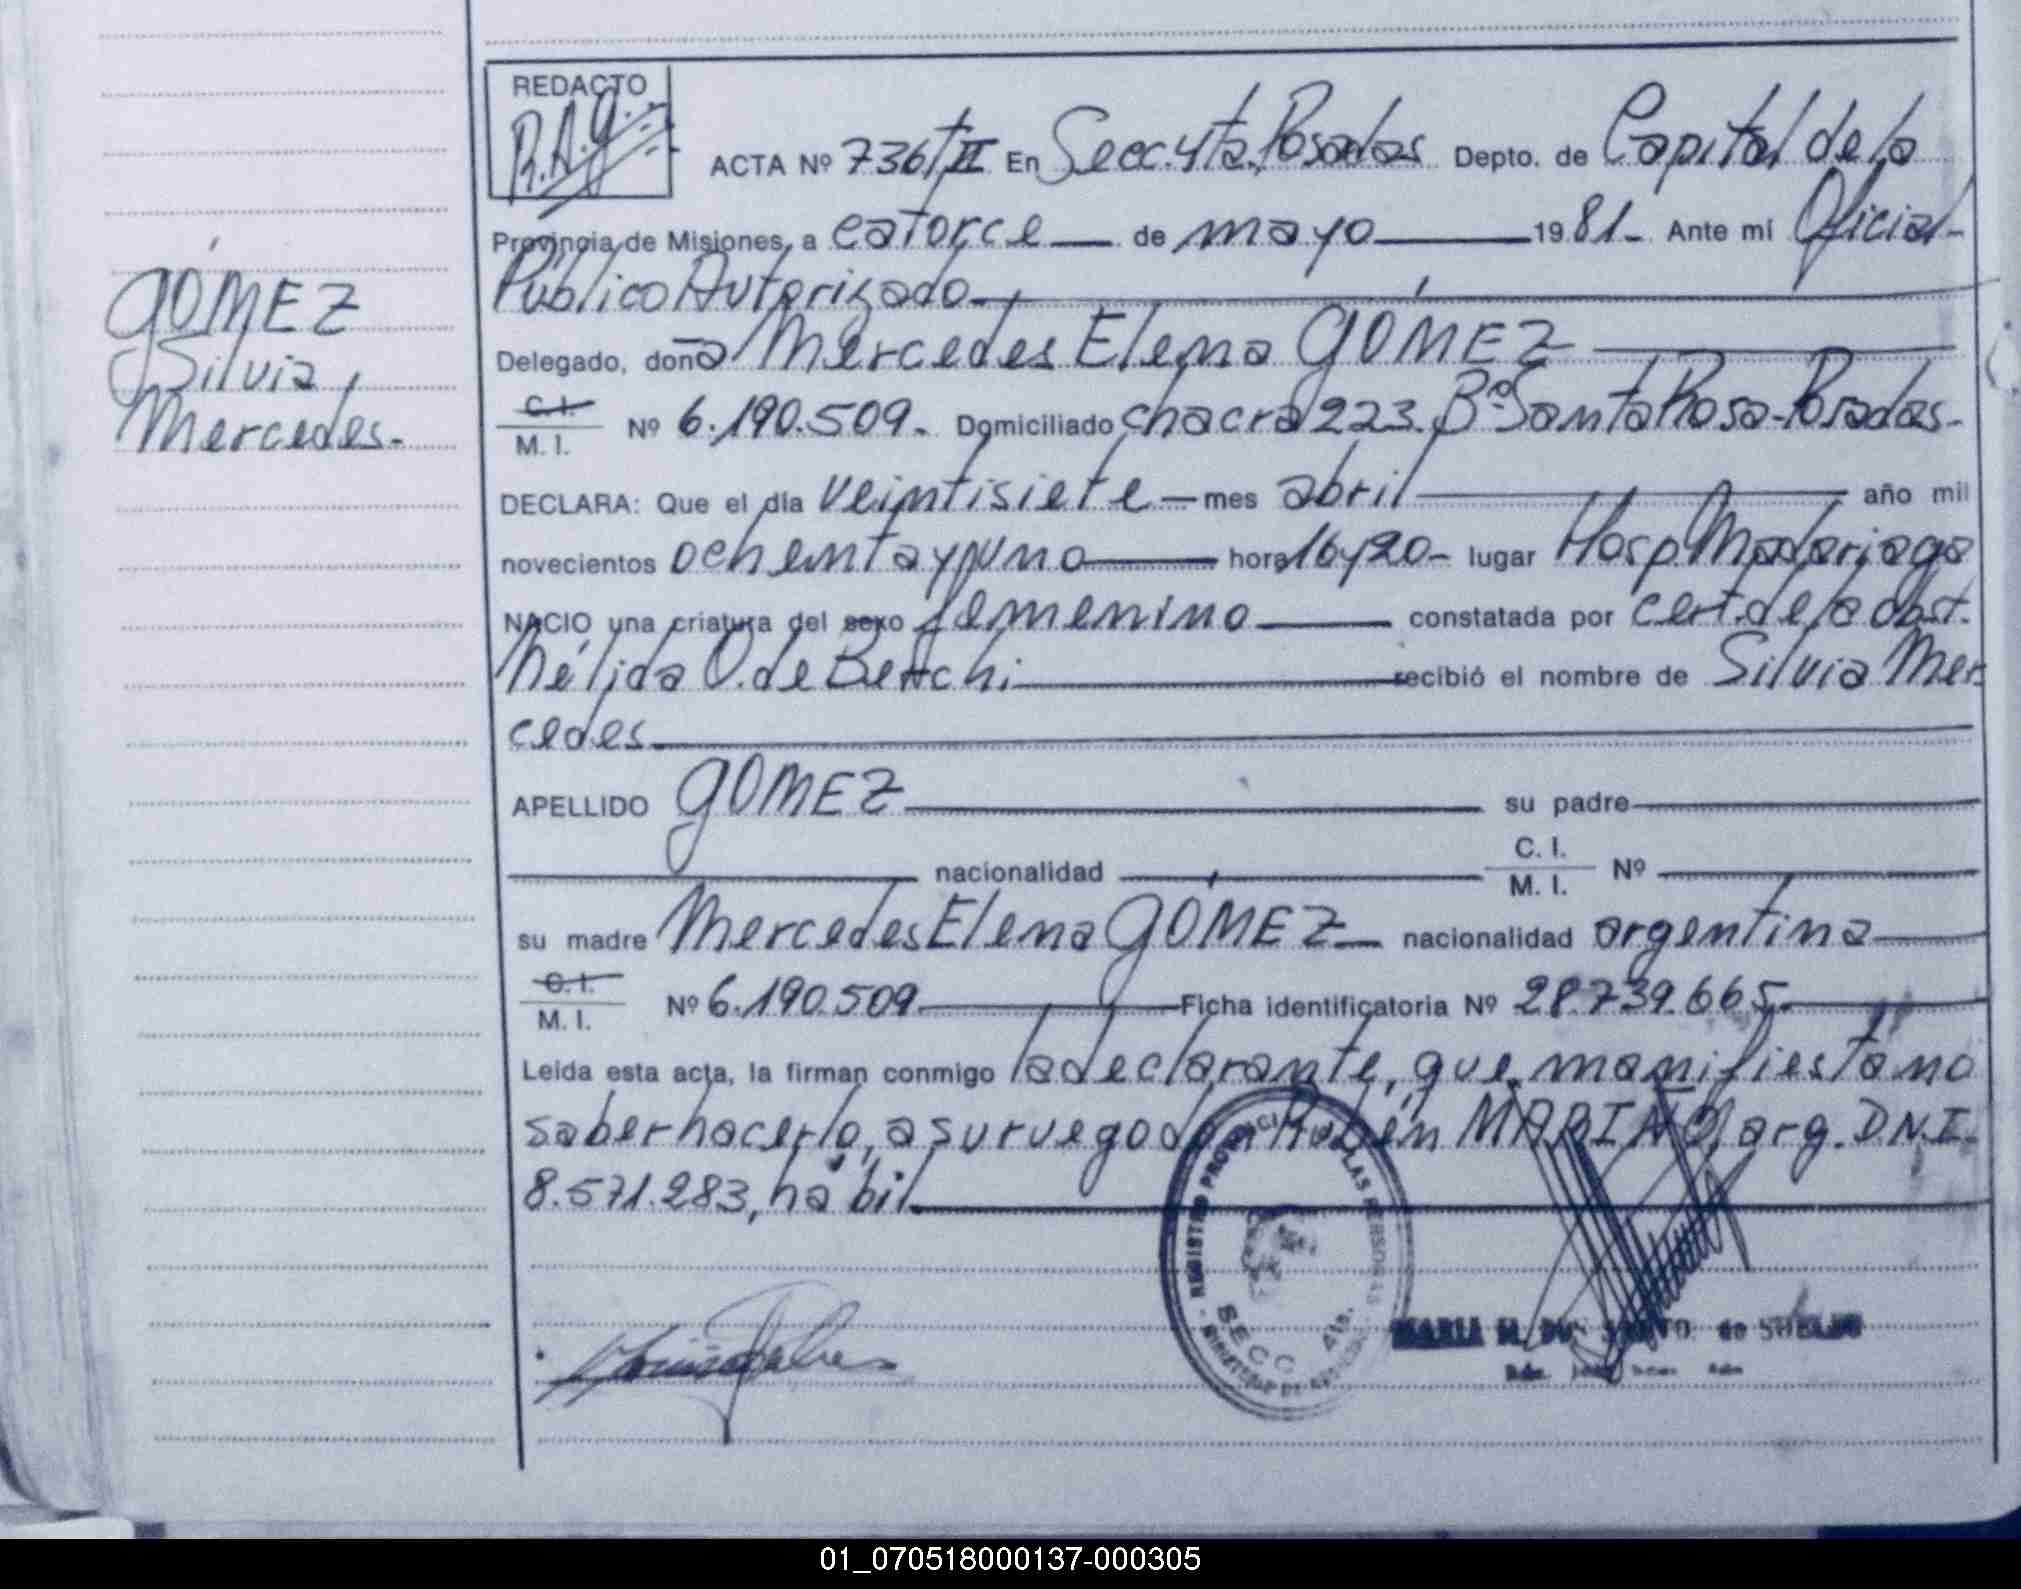 REDACTO
R.A.G.
ACTA Nº 736/T II En Secc. 4ta. Posadas Depto. de Capital de la
Provincia de Misiones, a catorce de mayo 1981- Ante mí Oficial
Público Autorizado
GÓMEZ
Silvia
Mercedes.-
Delegado, doña Mercedes Elena GÓMEZ
C. I.
M. I. Nº 6.190.509.- Domiciliado chacra 223. Bº Santa Rosa-Posadas-
DECLARA: Que el día veintisiete mes abril año mil
novecientos ochenta y uno hora 16y20- lugar Hosp. Madariaga
NACIO una criatura del sexo femenino constatada por cert. de la obst.
Nélida O. de recibió el nombre de Silvia Mer
cedes
APELLIDO GOMEZ su padre
nacionalidad C. I. M. I. Nº
su madre Mercedes Elena GOMEZ nacionalidad argentina
C. I.
M. I. Nº 6.190.509 Ficha identificatoria Nº 28.739.665
Leída esta acta, la firman conmigo la declarante, que manifiesta no
saber hacerlo, a su ruego don Rubén MARINO, arg. D.N.I.
8.571.283, hábil
REGISTRO PROVINCIAL DE LAS PERSONAS
SECC. 4ta.
MARIA M.
01_070518000137-000305